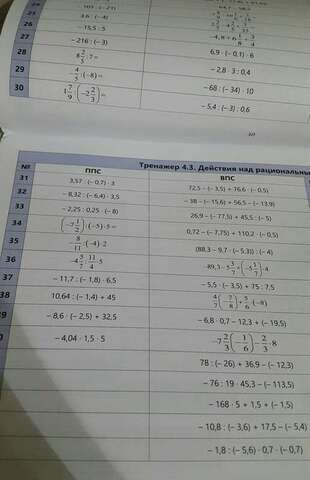 25
3,6 · (−4)
26
−15,5 : 5
27
−216 : (−3)
6,9 · (−0,1) · 6
28
8 2/5 · 7 =
−2,8 · 3 : 0,4
29
−4/5 : (−8) =
−68 : (−34) · 10
30
1 7/9 · (−2 2/3) =
−5,4 : (−3) : 0,6
№
Тренажер 4.3. Действия над рациональны
ППС
ВПС
31
3,57 : (−0,7) · 3
72,5 − (−3,5) + 76,6 · (−0,5)
32
−8,32 : (−6,4) · 3,5
−38 − (−15,6) + 56,5 − (−13,9)
33
−2,25 : 0,25 · (−8)
26,9 − (−77,5) + 45,5 : (−5)
34
(−7 1/2) : (−5) · 5 =
0,72 − (−7,75) + 110,2 · (−0,5)
35
8/11 · (−4) · 2
(88,3 − 9,7 · (−5,3)) : (−4)
36
37
−11,7 : (−1,8) · 6,5
−5,5 · (−3,5) + 75 : 7,5
38
10,64 : (−1,4) + 45
4/7 (−7/8) + 5/6 · (−8)
−8,6 · (−2,5) + 32,5
−6,8 · 0,7 − 12,3 + (−19,5)
−4,04 · 1,5 · 5
−7 2/3 (−1/6) − 2/3 · 8
78 : (−26) + 36,9 − (−12,3)
−76 : 19 · 45,3 − (−113,5)
−168 · 5 + 1,5 + (−1,5)
−10,8 : (−3,6) + 17,5 − (−5,4)
−1,8 : (−5,6) · 0,7 · (−0,7)